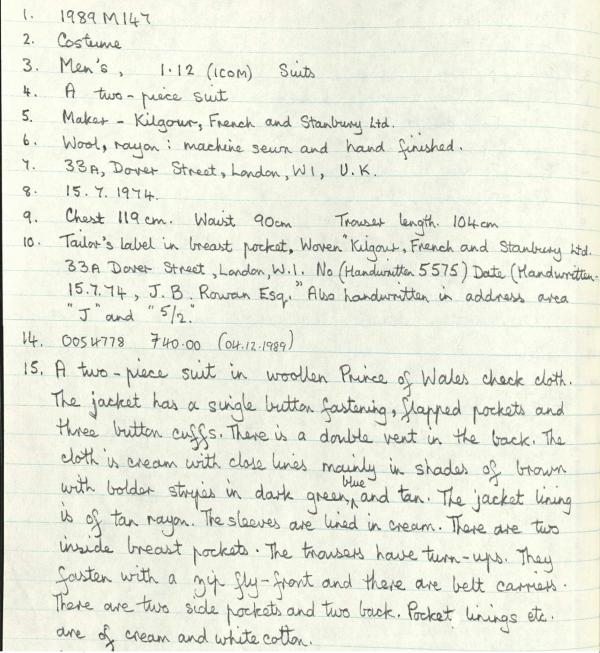 1. 1989 M147
2. Costume
3. Men's, 1.12 (ICOM) Suits
4. A two-piece suit
5. Maker - Kilgour, French and Stanbury Ltd.
6. Wool, rayon: machine sewn and hand finished.
7. 33A, Dover Street, London, W1, U.K.
8. 15.7.1974.
9. Chest 119cm. Waist 90cm Trouser length. 104cm
10. Tailor's label in breast pocket, Woven "Kilgour, French and Stanbury Ltd.
33A Dover Street, London, W.1. No (Handwritten 5575) Date (Handwritten-
15.7.74, J.B. Rowan Esq." Also handwritten in address area
"J" and "5/2."
14. 0054778 740.00 (04.12.1989)
15. A two-piece suit in woollen Prince of Wales check cloth.
The jacket has a single button fastening, flapped pockets and
three button cuffs. There is a double vent in the back. The
cloth is cream with close lines mainly in shades of brown
with bolder stripes in dark green, blue and tan. The jacket lining
is of tan rayon. The sleeves are lined in cream. There are two
inside breast pockets. The trousers have turn-ups. They
fasten with a zip fly-front and there are belt carriers.
There are two side pockets and two back. Pocket linings etc.
are of cream and white cotton.